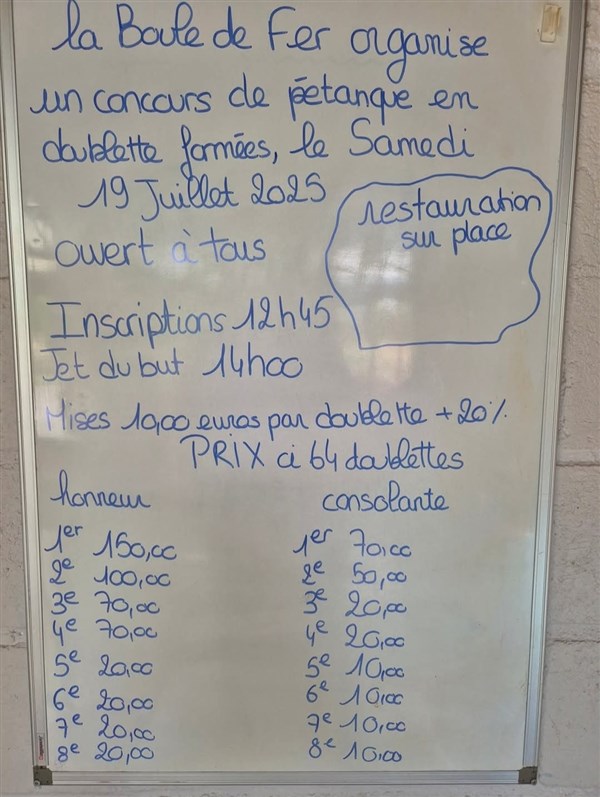 la Boule de Fer organise
un concours de pétanque en
doublette formées, le Samedi
19 Juillet 2025
restauration
sur place
ouvert à tous
Inscriptions 12h45
Jet du but 14h00
Mises 10,00 euros par doublette + 20%
PRIX ci 64 doublettes
honneur
1er 150,00
2e 100,00
3e 70,00
4e 70,00
5e 20,00
6e 20,00
7e 20,00
8e 20,00
consolante
1er 70,00
2e 50,00
3e 20,00
4e 20,00
5e 10,00
6e 10,00
7e 10,00
8e 10,00